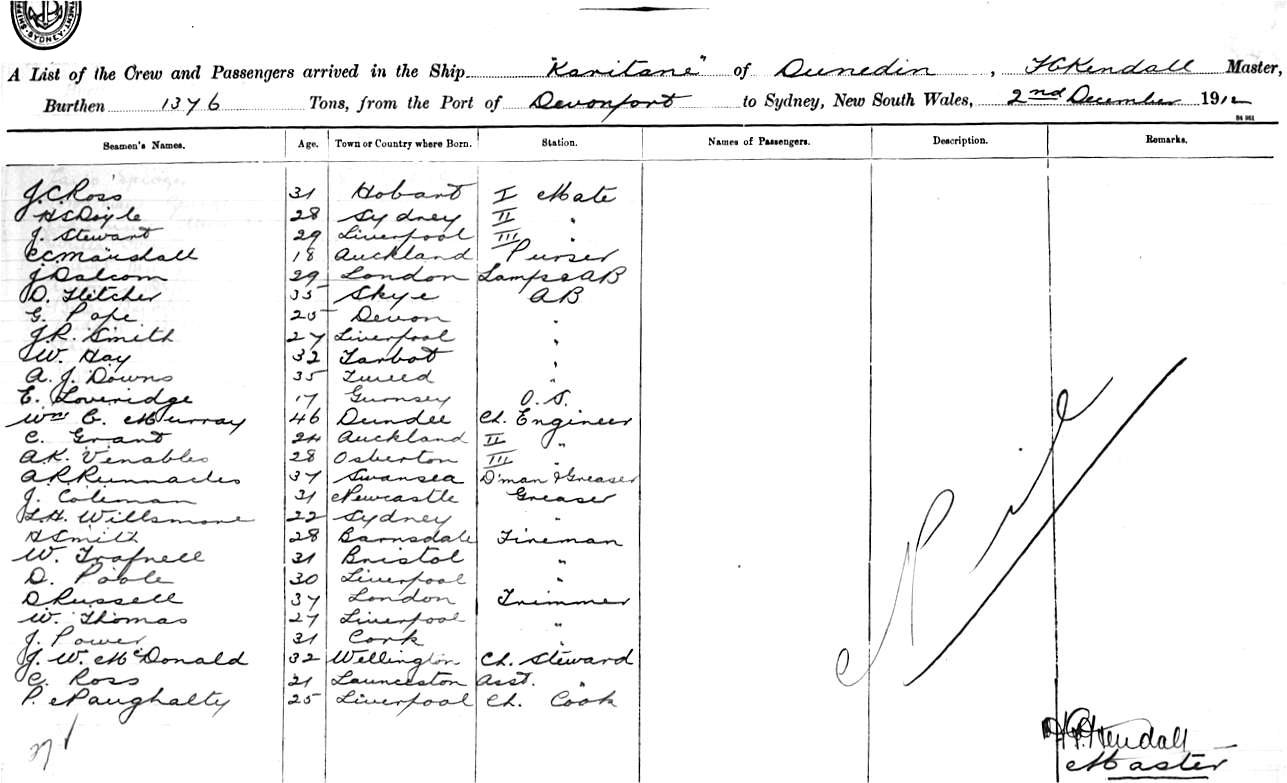 SYDNEY
A List of the Crew and Passengers arrived in the Ship "Karitane" of Dunedin, Kendall Master,
Burthen 1376 Tons, from the Port of Devonport to Sydney, New South Wales, 2nd December 1912
Seamen's Names. Age. Town or Country where Born. Station. Names of Passengers. Description. Remarks.
J.C. Ross 31 Hobart I Mate
H S Doyle 28 Sydney II "
J. Stewart 29 Liverpool III "
C C Marshall 18 Auckland Purser
J Dalcom 29 London Lamps & AB
D. Fletcher 35 Skye AB
G. Pope 25 Devon "
J.R. Smith 27 Liverpool "
W. Hay 32 Tarbot "
A. J. Downs 35 Tweed "
E. Loveridge 17 Guernsey O.S.
Wm C. Murray 46 Dundee Ch. Engineer
C. Grant 24 Auckland II "
A.K. Venables 28 Osberton III "
A R Runnacles 37 Swansea D'man & Greaser
J. Coleman 31 Newcastle Greaser
L.H. Willsmore 22 Sydney "
H Smith 28 Barnsdale Fireman
W. Trafnell 31 Bristol "
D. Poole 30 Liverpool "
D Russell 37 London Trimmer
W. Thomas 27 Liverpool "
J. Power 31 Cork "
J. W. McDonald 32 Wellington Ch. Steward
C. Ross 21 Launceston Asst. "
P. 25 Liverpool Ch. Cook
Nil
27
Kendall
Master